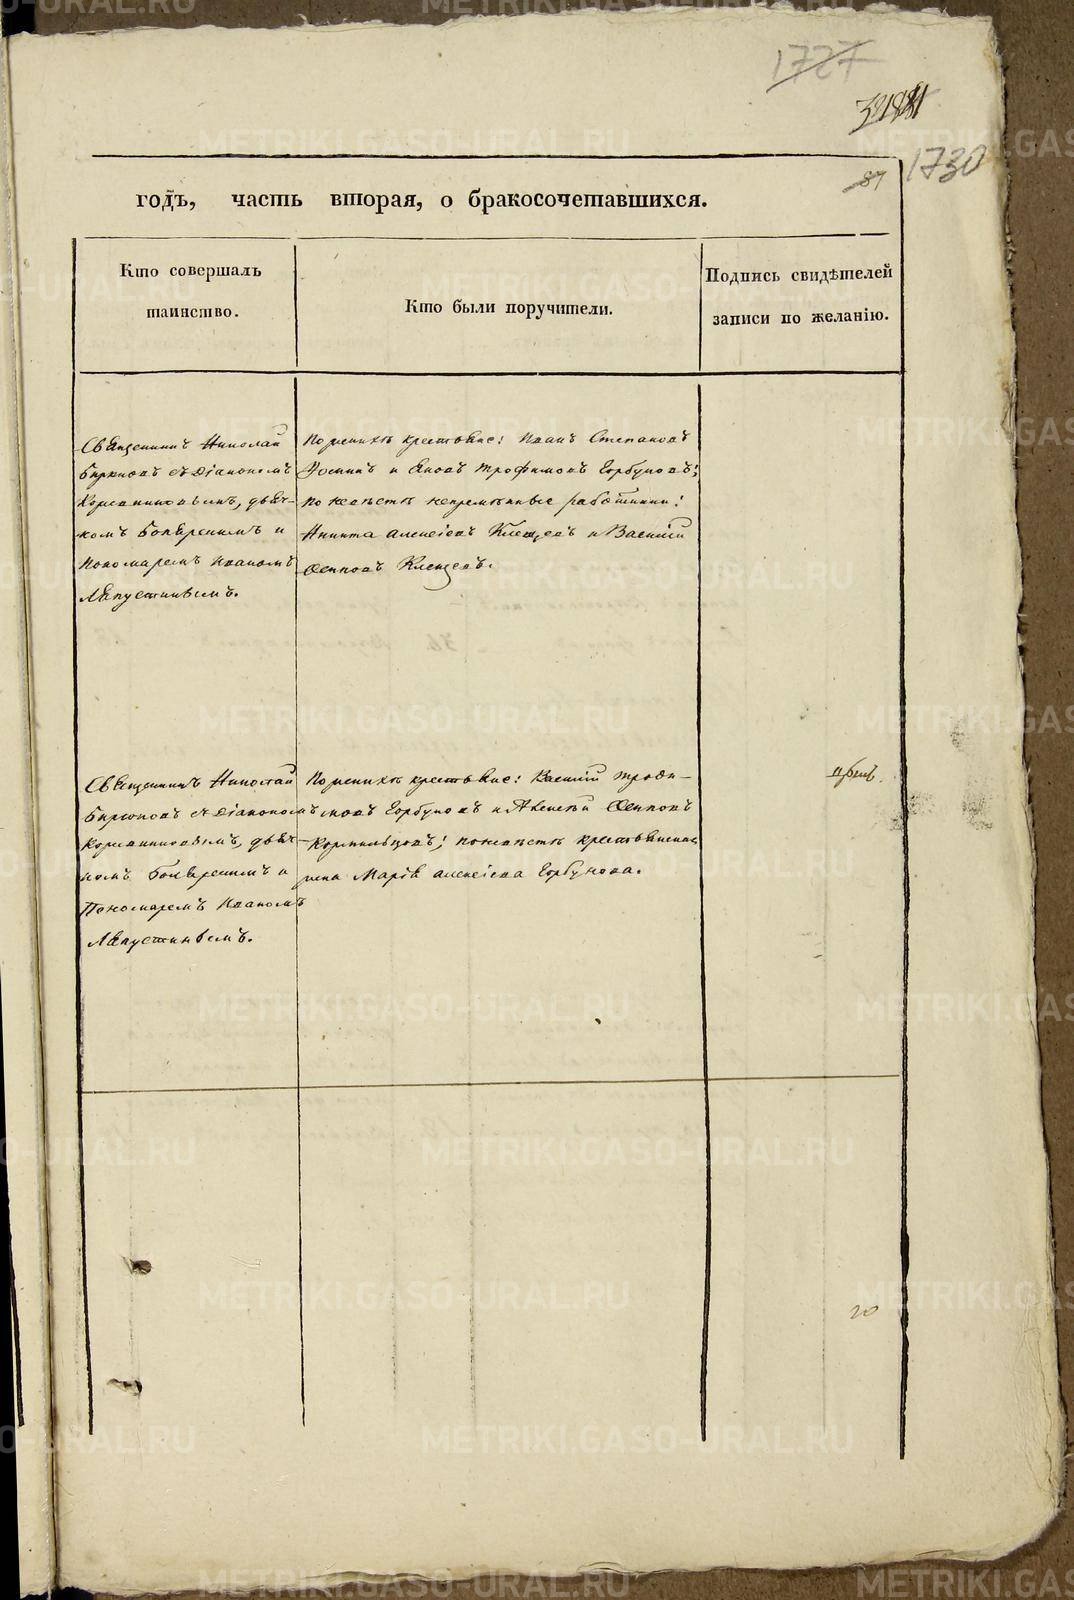 1727
1730
87
годъ, часть вторая, о бракосочетавшихся.
Кто совершалъ
таинство.
Кто были поручители.
Подпись свидѣтелей
записи по желанію.
Священникъ Николай
Бирюковъ съ Діакономъ
дьяч-
комъ Боляренимъ и
Пономаремъ Иваномъ
Августиновымъ.
По женихѣ крестьяне: Иванъ Степановъ
и Яковъ Трофимовъ Горбуновъ;
по невѣстѣ непремѣнные работники:
Никита Алексѣевъ Клещевъ и Василій
Осиповъ Клещевъ.
Священникъ Николай
Бирюковъ съ Діакономъ
дьяч-
комъ Боляренимъ и
Пономаремъ Иваномъ
Августиновымъ.
По женихѣ крестьяне: Василій Трофи-
мовъ Горбуновъ и Алексѣй Осиповъ
Кормильцовъ; по невѣстѣ крестьянская
жена Марія Алексѣева Горбунова.
20
METRIKI.GASO-URAL.RU